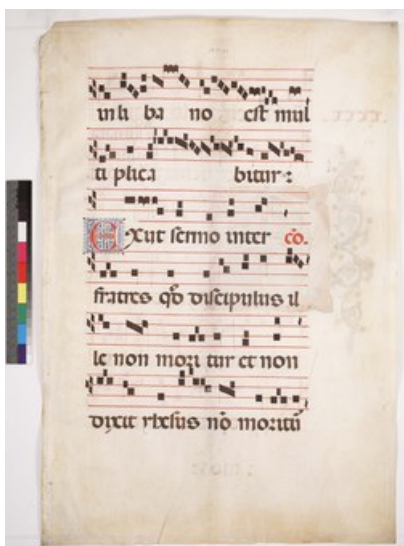 in li ba no est mul
ti plica bitur :
Exiit sermo inter cō.
fratres qō discipulus il
le non mori tur et non
dixit yhesus nō moritū